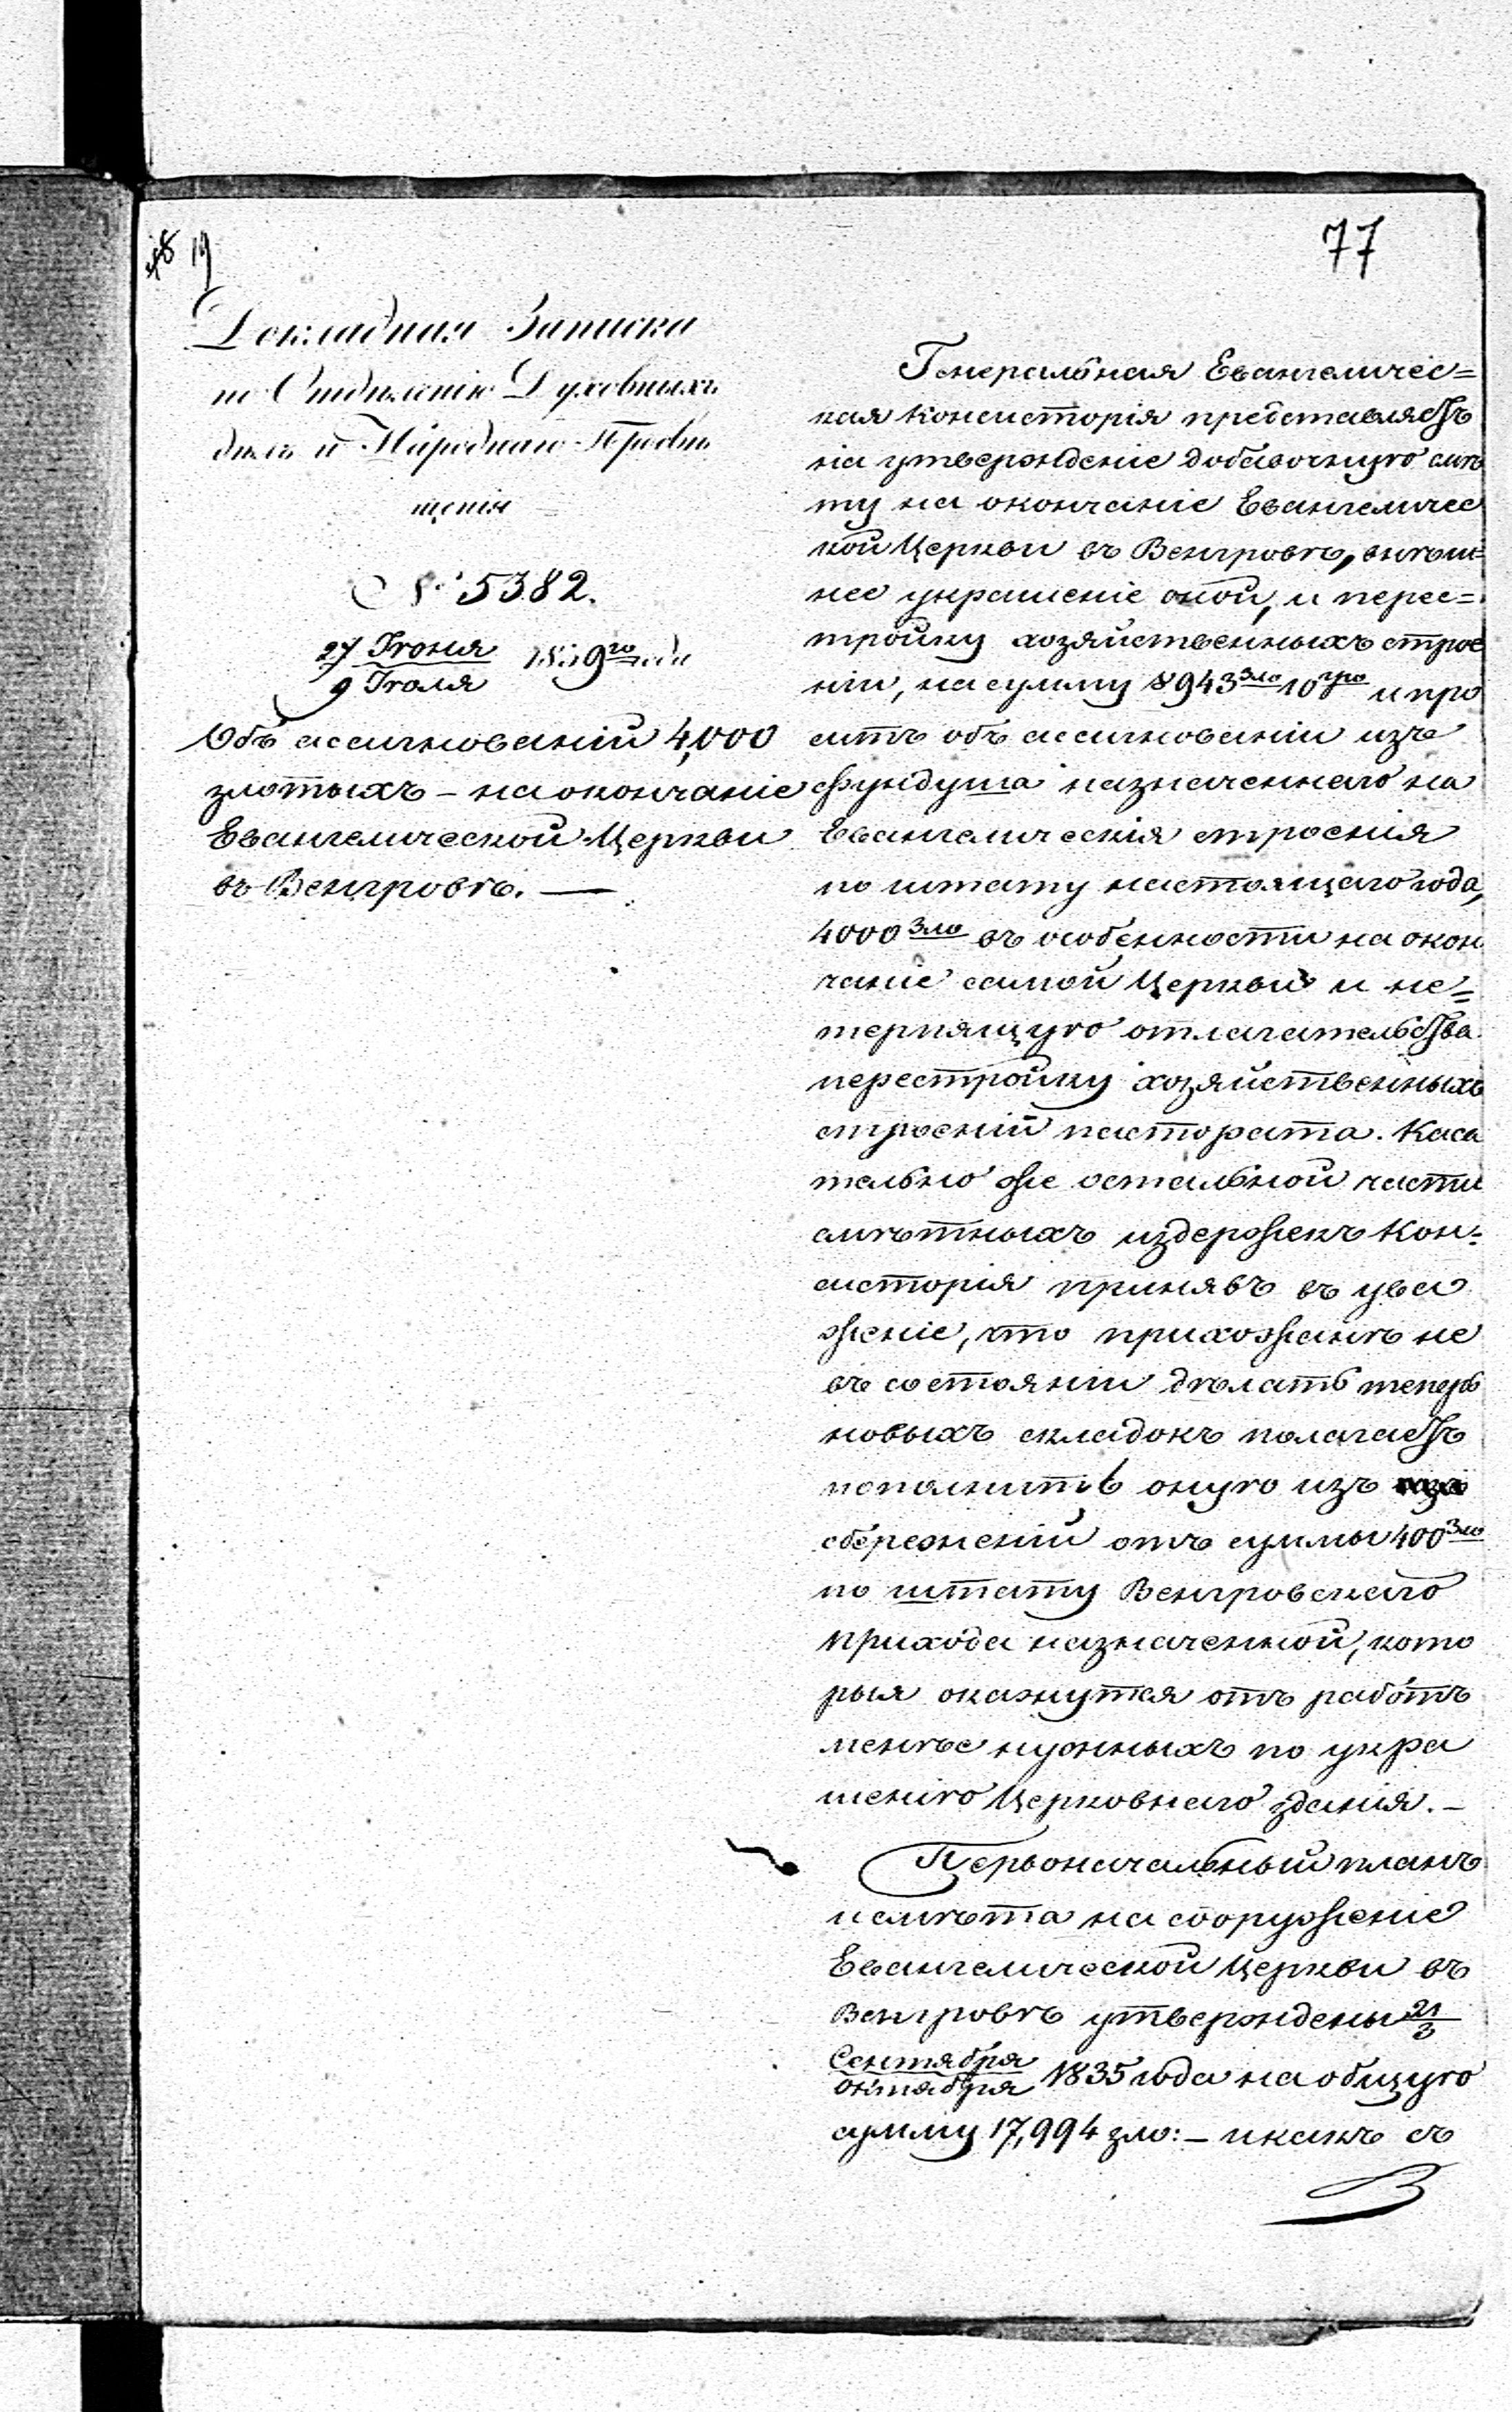 77
19
Докладная Записка
по Отдѣленію Духовныхъ
дѣлъ и Народнаго Просвѣ
щенія
№ 5382.
27 Іюня / 9 Іюля 1839го года
Объ ассигнованіи 4,000
злотыхъ – на окончаніе
Евангелической Церкви
въ Венгровѣ. —
Генеральная Евангеличес=
кая Консисторія представляетъ
на утвержденіе добавочную смѣ
ту на окончаніе Евангеличес
кой Церкви въ Венгровѣ, внѣш=
нее украшеніе оной, и перес=
тройку хозяйственныхъ строе
ній, на сумму 8943 зло 10 гро и про
ситъ объ ассигнованіи изъ
фундуша назначеннаго на
Евангелическія строенія
по штату настоящаго года,
4000 зло въ особенности на окон
чаніе самой Церкви и не=
терпящую отлагательства
перестройку хозяйственныхъ
строеній пастората. Каса
тельно же остальной части
смѣтныхъ издержекъ Кон=
систорія принявъ въ ува
женіе, что прихожанѣ не
въ состояніи дѣлать теперь
новыхъ складокъ полагаетъ
пополнить оную изъ
сбереженій отъ суммы 400 зло
по штату Венгровскаго
прихода назначенной, кото
рыя окажутся отъ работъ
менѣе нужныхъ по укра
шенію Церковнаго зданія. –
Первоначальный планъ
и смѣта на сооруженіе
Евангелической Церкви въ
Венгровѣ утверждены 21/3
Сентября / Октября 1835 года на общую
сумму 17,994 зло: – и какъ съ